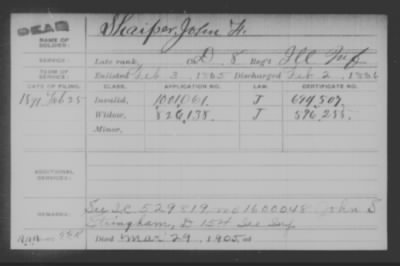 DEAD
NAME OF SOLDIER:
Shaifer, John W.
SERVICE:
Late rank, Co. D, 8 Reg't Ill Inf
TERM OF SERVICE:
Enlisted Feb 3, 1865 Discharged Feb 2, 1866
DATE OF FILING. CLASS. APPLICATION NO. LAW. CERTIFICATE NO.
1891 Feb 25 Invalid, 1001061 J 694,509
Widow, 826,138 J 596,288
Minor,
ADDITIONAL SERVICES:
REMARKS:
See Sc 529819 1600048 John S
D 154
Died Mar 29, 1905, at